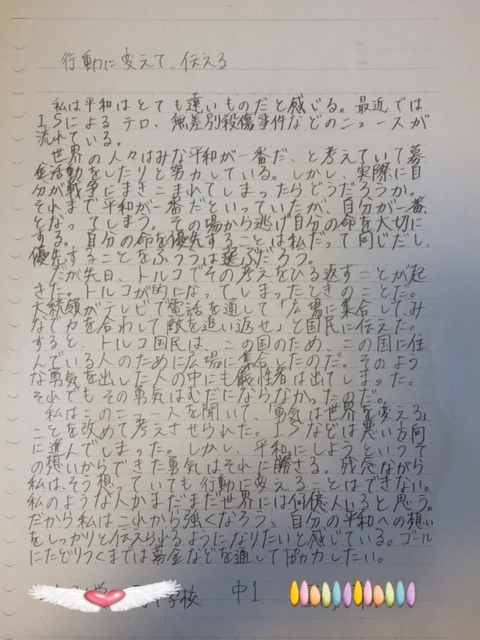 行動に変えて、伝える
私は平和はとても遠いものだと感じる。最近では
ISによるテロ、無差別殺傷事件などのニュースが
流れている。
世界の人々はみな平和が一番だ、と考えていて募
金活動をしたりと努力している。しかし、実際に自
分が戦争にまきこまれてしまったらどうだろうか。
それまで平和が一番だといっていたが、自分が一番
となってしまう。その場から逃げ自分の命を大切に
する。自分の命を優先することは私だって同じだし、
優先することをふつうは選ぶだろう。
だが先日、トルコでその考えをひる返すことが起
きた。トルコが的になってしまったときのことだ。
大統領がテレビで電話を通して「広場に集合してみ
なで力を合わして敵を追い返せ」と国民に伝えた。
すると、トルコ国民は、この国のため、この国に住
んでいる人のために広場に集合したのだ。そのよう
な勇気を出した人の中にも犠牲者は出てしまった。
それでもその勇気はむだにならなかったのだ。
私はこのニュースを聞いて、「勇気は世界を変える」
ことを改めて考えさせられた。ISなどは悪い方向
に進んでしまった。しかし、平和にしようといって
の想いからできた勇気はそれに勝さる。残念ながら
私はそう想っていても行動に変えることはできない。
私のような人がまだまだ世界には何億人いると思う。
だから私はこれから強くなろう、自分の平和への想い
をしっかりと伝えられるようになりたいと感じている。ゴール
にたどりつくまでは募金などを通して協力したい。
学校 中1